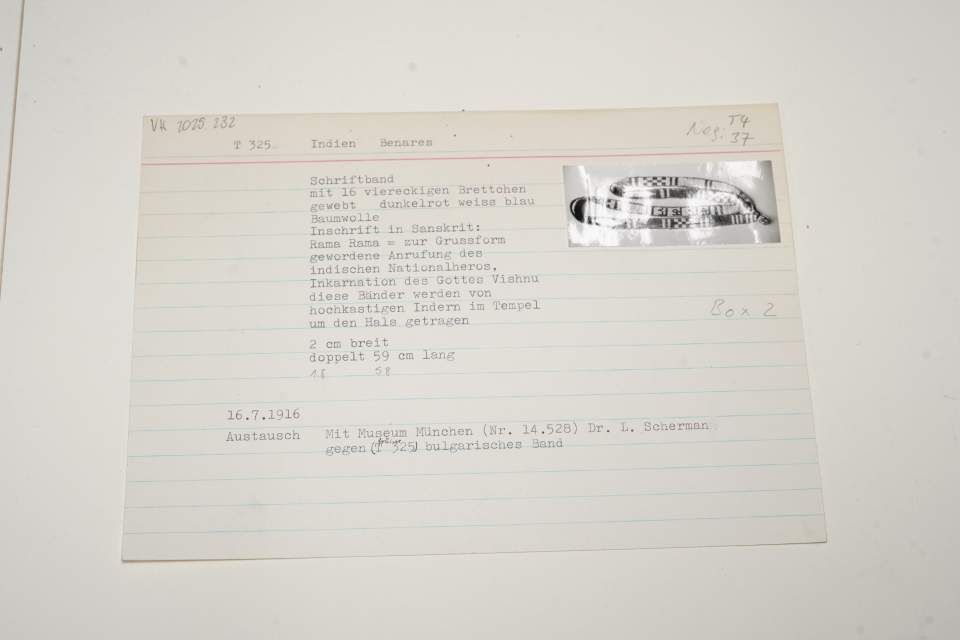 VK 1025.232
Neg: T4
37
T 325 Indien Benares
Schriftband
mit 16 viereckigen Brettchen
gewebt dunkelrot weiss blau
Baumwolle
Inschrift in Sanskrit:
Rama Rama = zur Grussform
gewordene Anrufung des
indischen Nationalheros,
Inkarnation des Gottes Vishnu
diese Bänder werden von
hochkastigen Indern im Tempel
um den Hals getragen
Box 2
2 cm breit
doppelt 59 cm lang
1.8 58
16.7.1916
Austausch Mit Museum München (Nr. 14.528) Dr. L. Scherman
gegen (T 325) bulgarisches Band